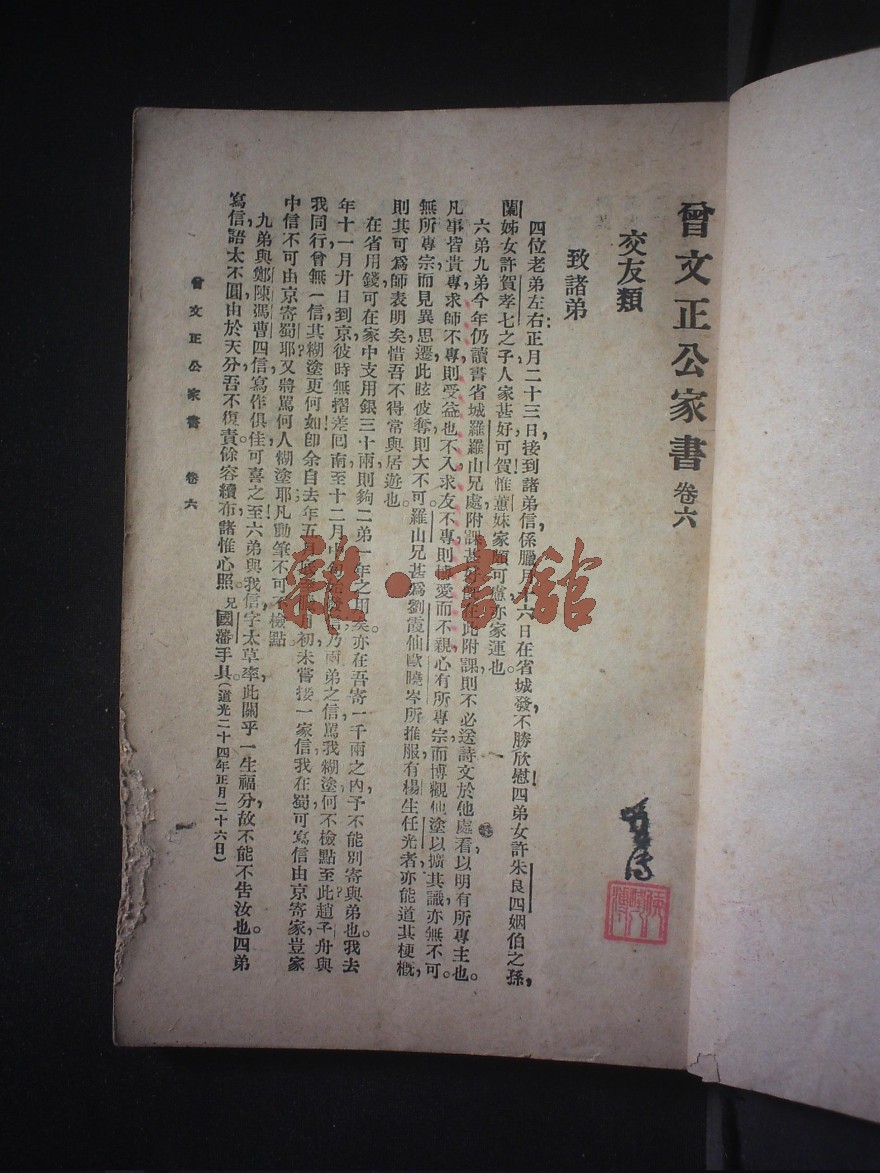 曾文正公家書 卷六
交友類
致諸弟
四位老弟左右:正月二十三日接到諸弟信,係臘月 六日在省城發,不勝欣慰!四弟女許朱良四姻伯之孫,
蘭姊女許賀孝七之子,人家甚好,可賀!惟蕙妹家頗可慮,亦家運也。
六弟九弟今年仍讀書省城羅羅山兄處附課甚 此附課,則不必送詩文於他處看,以明有所專主也。
凡事皆貴專,求師不專,則受益也不入,求友不專,則博愛而不親,心有所專宗,而博觀他塗以擴其識,亦無不可。
無所專宗,而見異思遷,此眩彼奪,則大不可。羅山兄甚爲劉霞仙歐曉岑所推服,有楊生任光者,亦能道其梗概,
則其可爲師表明矣,惜吾不得常與居遊也。
在省用錢,可在家中支用,銀三十兩,則夠二弟一年之用矣,亦在吾寄一千兩之內,予不能別寄與弟也。我去
年十一月廿日到京,彼時無摺差囘南,至十二月中 信,乃兩弟之信,罵我糊塗,何不檢點至此?趙子舟與
我同行,曾無一信,其糊塗更何如?卽余自去年五月 初未嘗接一家信,我在蜀可寫信由京寄家,豈家
中信不可由京寄蜀耶?又將罵何人糊塗耶?凡動筆不可不檢點。
九弟與鄭陳馮曹四信,寫作俱佳,可喜之至!六弟與我信,字太草率,此關乎一生福分,故不能不告汝也。四弟
寫信,語太不圓,由於天分,吾不復責。餘容續布,諸惟心照。兄國藩手具。(道光二十四年正月二十六日)
曾文正公家書 卷六
雜·書館